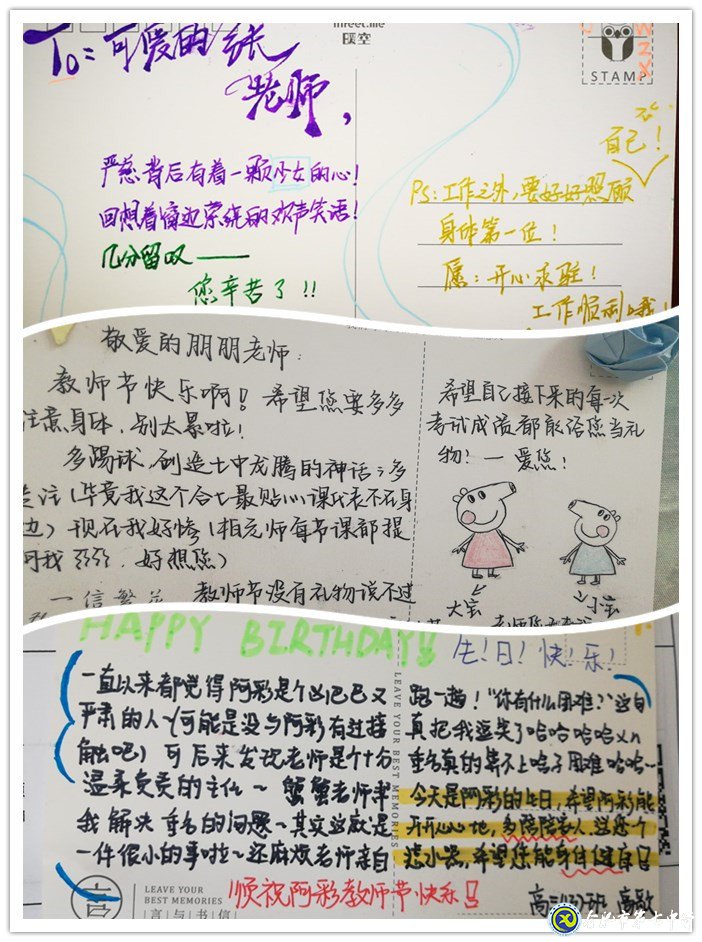 To：可爱的张
老师，
STAMP
严慈背后有着一颗少女的心！
回想着窗边系统的欢声笑语！
几分留叹——
您辛苦了!!
自己！
PS：工作之外，要好好照顾
身体第一位！
愿：开心求驻！
工作顺利哦！
敬爱的朋朋老师：
教师节快乐啊！希望您要多多
注意身体，别太累啦！
多踢球，创造七中龙腾的神话；多
关注（毕竟我这个合七最贴心课代表不在身
边）现在我好惨（相元师每节课都提
问我 好想您）
教师节没有礼物说不过
希望自己接下来的每一次
考试成绩都能给您当礼
物！—爱您！
大宝
小宝
HAPPY BIRTHDAY!!
生！日！快！乐！
一直以来都觉得阿彩是个凶巴巴又
严肃的人~（可能是没与阿彩有过接
触吧）可后来发现老师是个十分
温柔负责的主任~ 蟹蟹老师帮
我解决重名的问题~其实这就是
一件很小的事啦~还麻烦老师亲自
跑一趟！“你有什么困难？”这句
真把我逗笑了哈哈哈哈xn
重名真的算不上啥子困难哈哈~
今天是阿彩的生日，希望阿彩能
开开心心地，多陪陪家人
希望您能身体健康!!
LEAVE YOUR BEST MEMORIES
LEAVE YOUR
BEST MEMORIES
言与书信
顺祝阿彩教师节快乐!!
合肥市第七中学